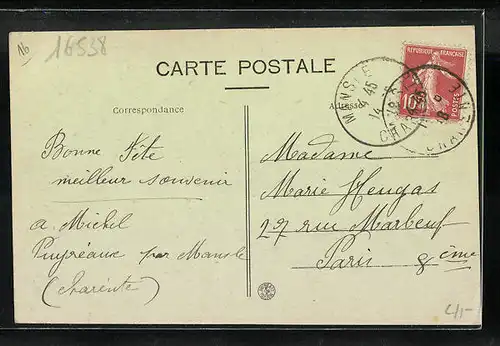 16
16538
CARTE POSTALE
Correspondance
Adresse
RÉPUBLIQUE FRANÇAISE
10
POSTES
MANSLE
14 45
CHARENTE
Bonne Fête
meilleur souvenir
a. Michel
Puyréaux par Mansle
(Charente)
Madame
Marie Heugas
27 rue Marbeuf
Paris 8ème
4/-